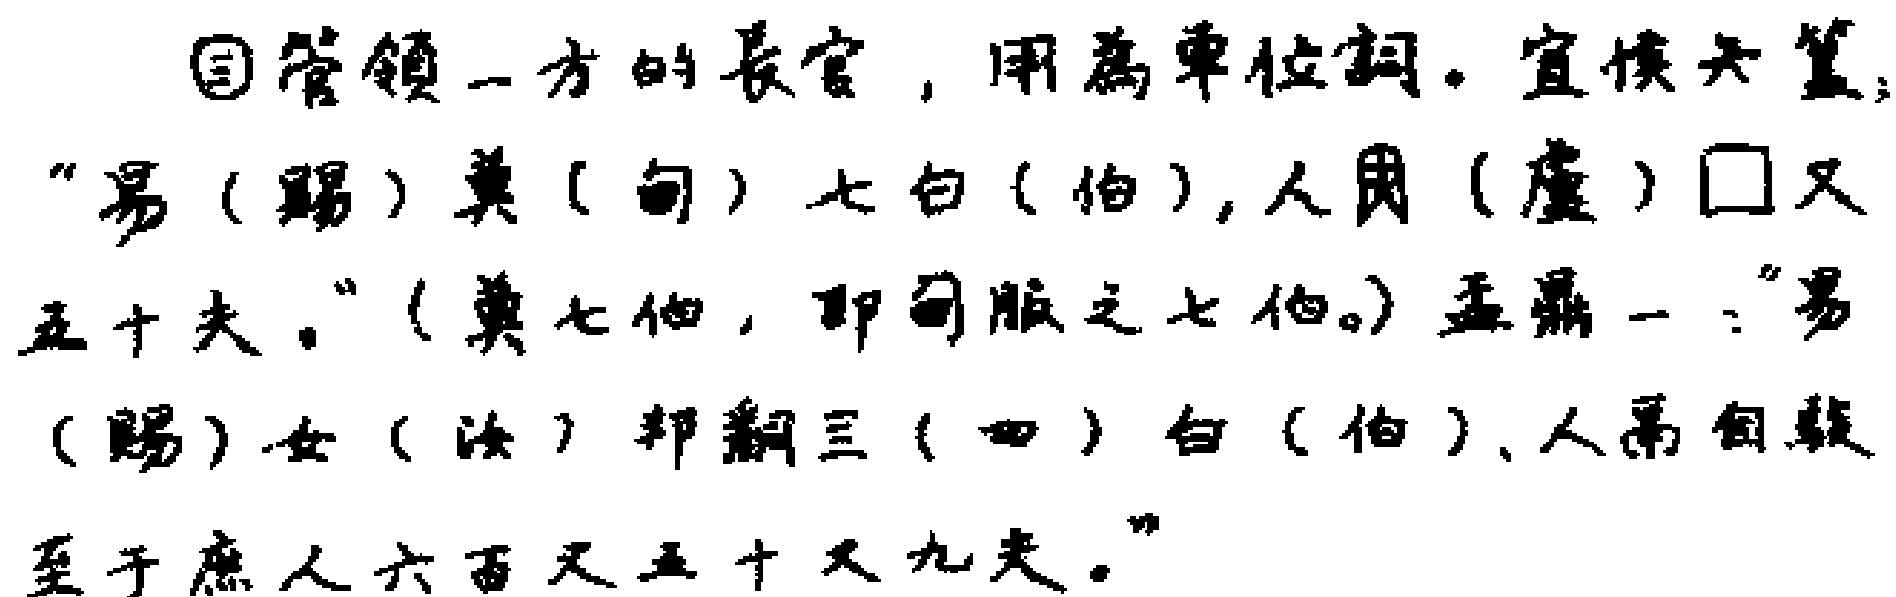 ㊂管領一方的長官，用為單位詞。宜侯夨簋：
“易（賜）奠（甸）七白（伯），人（盧）□又
五十夫。”（奠七伯，即甸服之七伯。）盂鼎一：“易
（賜）女（汝）邦𤔲三（四）白（伯），人鬲自馭
至于庶人六百又五十又九夫。”